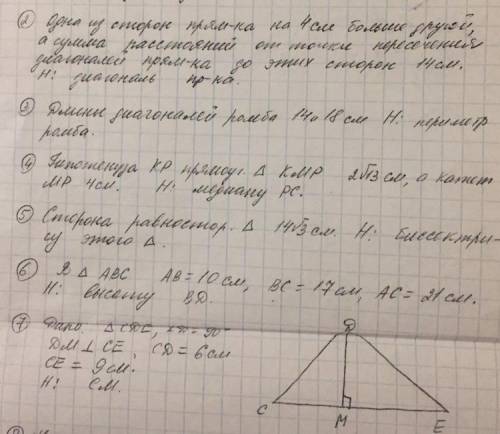 ② Одна из сторон прям-ка на 4 см больше другой,
а сумма расстояний от точки пересечения
диагоналей прям-ка до этих сторон 14 см.
Н: диагональ пр-ка.
③ Длины диагоналей ромба 14 и 18 см Н: периметр
ромба.
④ Гипотенуза KP прямоуг. △ KMP 2√13 см, а катет
MP 4см. Н: медиану PC.
⑤ Сторона равностор. △ 14√3 см. Н: биссектри-
су этого △.
⑥ В △ ABC AB = 10 см, BC = 17 см, AC = 21 см.
Н: высоту BD.
⑦ Дано △CDE,
DM ⊥ CE, CD = 6 см
CE = 9 см.
Н: CM.
D
C
M
E